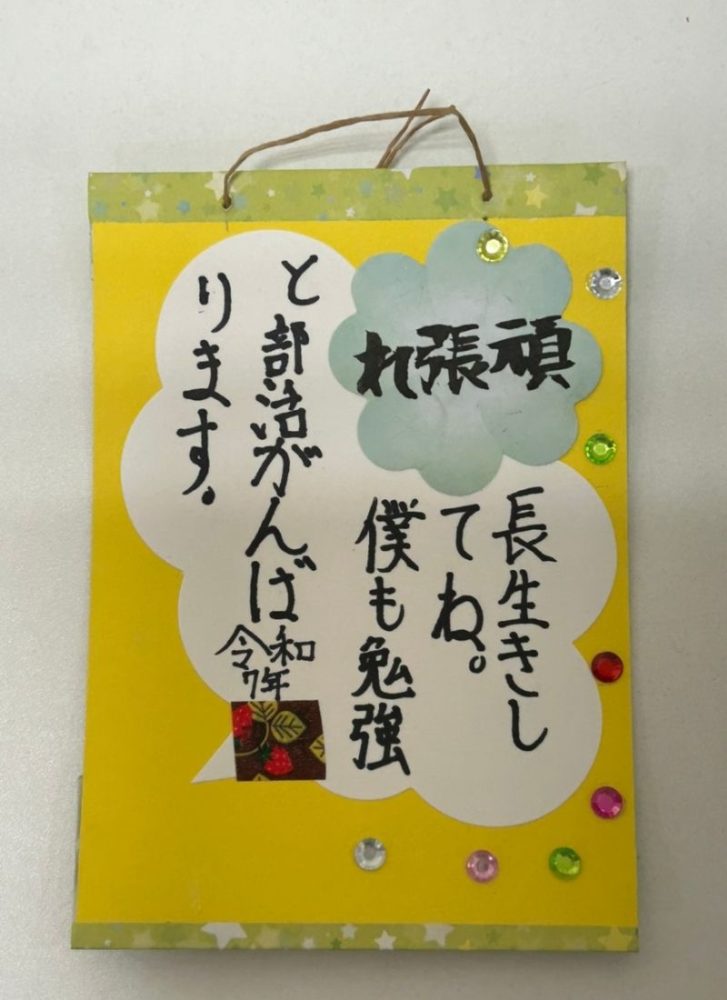 頑張れ
長生きし
てね。
僕も勉強
と部活がんば
ります。
令和
7年